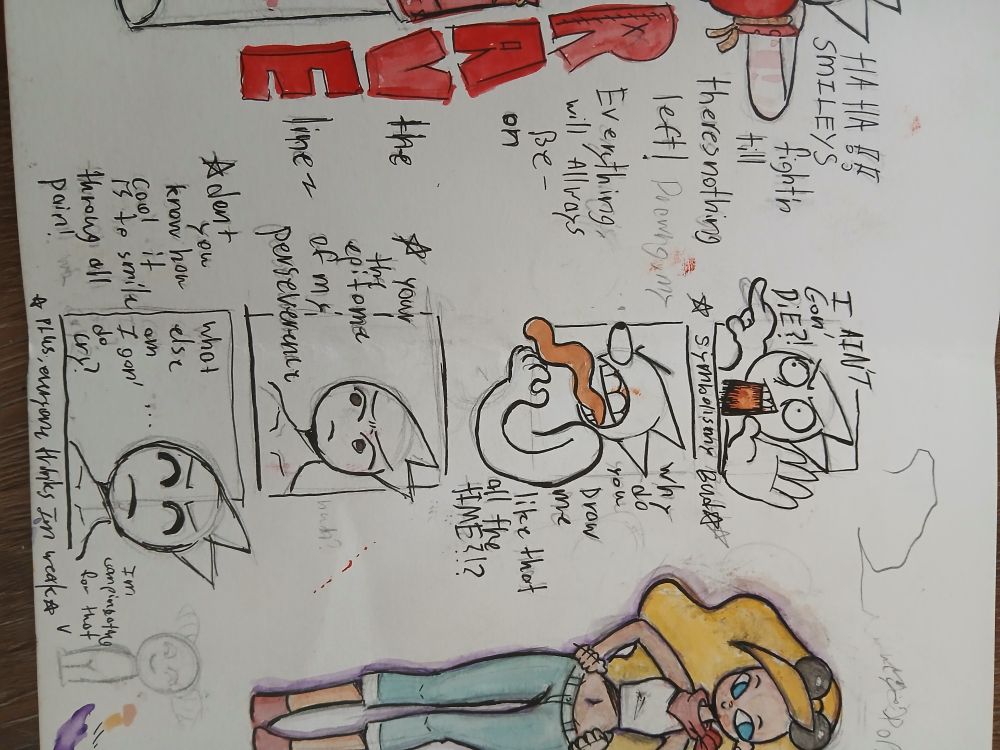 HA HA !!
SMILEYS
fightin
till
theres nothing
left! Drowning my
Everythings
will Allrays
Be-
on
the
line~
R
A
V
E
☆dont
you
know how
cool it
Is to smile
throug all
pain!
I AIN'T
GON'
DIE?!
☆ Symbolismy Bud☆☆
why
do
you
Draw
me
like that
all the
TIME?!?
☆ your
the
epitome
of my
perseverence
what
else
am ...
I gon'
do
cry?
☆ Plus, everyone thinks Im weak☆
Im
for that